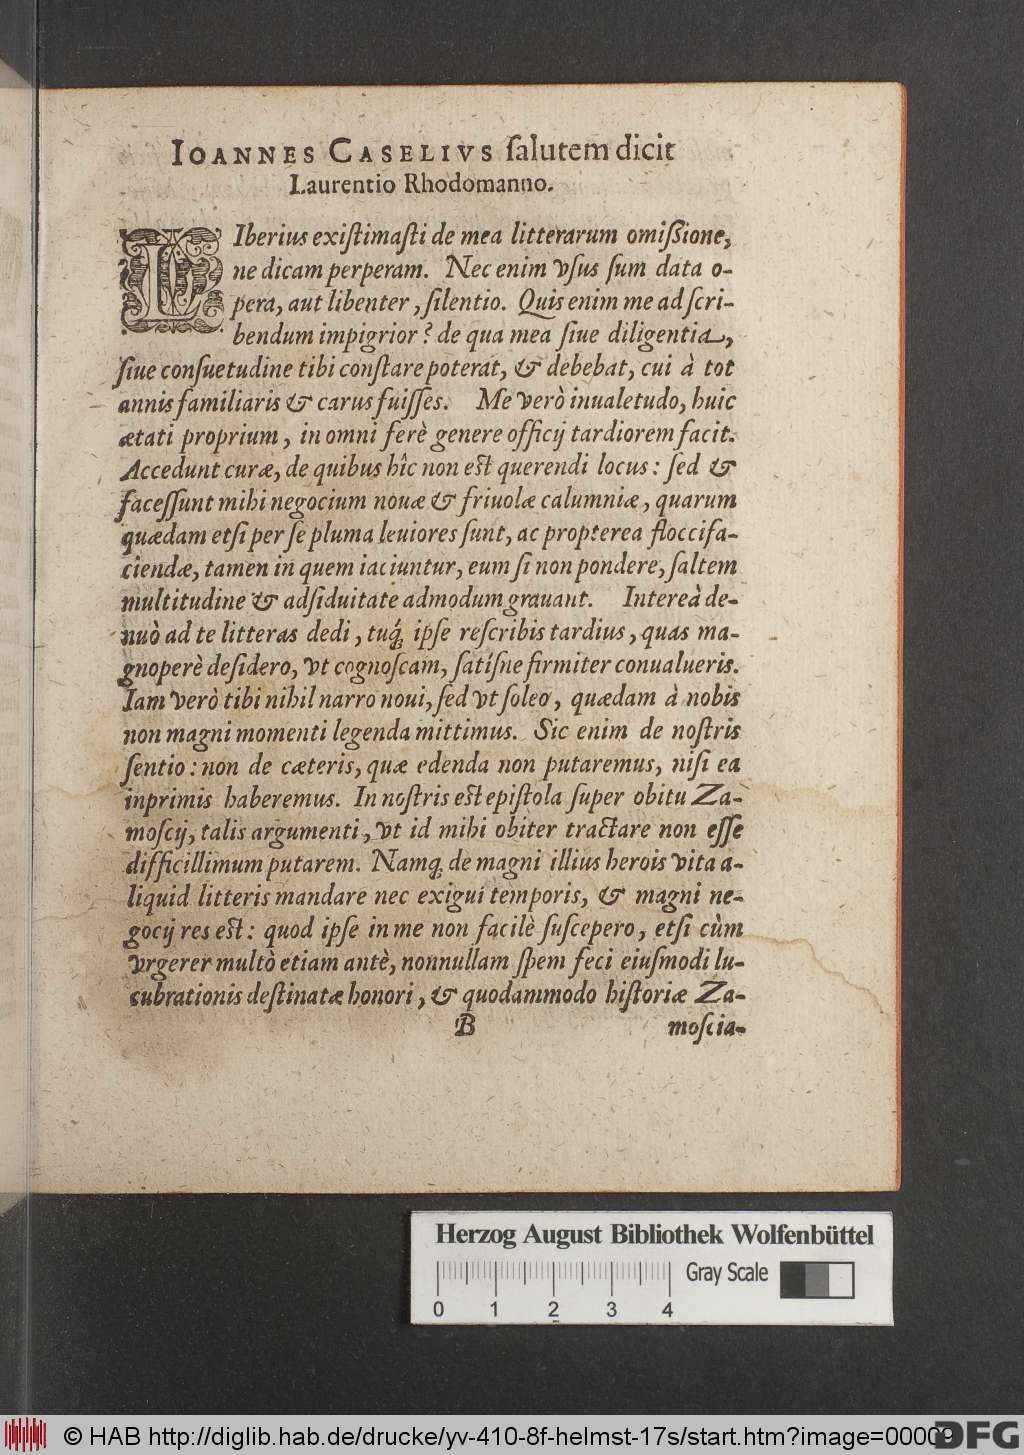 IOANNES CASELIVS ſalutem dicit
Laurentio Rhodomanno.
LIberius exiſtimaſti de mea litterarum omißione,
ne dicam perperam. Nec enim vſus ſum data o-
pera, aut libenter, ſilentio. Quis enim me ad ſcri-
bendum impigrior? de qua mea ſiue diligentia,
ſiue conſuetudine tibi conſtare poterat, & debebat, cui à tot
annis familiaris & carus fuiſſes. Me verò inualetudo, huic
ætati proprium, in omni ferè genere officij tardiorem facit.
Accedunt curæ, de quibus hîc non eſt querendi locus: ſed &
faceſſunt mihi negocium nouæ & friuolæ calumniæ, quarum
quædam etſi per ſe pluma leuiores ſunt, ac propterea floccifa-
ciendæ, tamen in quem iaciuntur, eum ſi non pondere, ſaltem
multitudine & adſiduitate admodum grauant. Intereà de-
nuò ad te litteras dedi, tuq́; ipſe reſcribis tardius, quas ma-
gnoperè deſidero, vt cognoſcam, ſatíſne firmiter conualueris.
Iam verò tibi nihil narro noui, ſed vt ſoleo, quædam à nobis
non magni momenti legenda mittimus. Sic enim de noſtris
ſentio: non de cæteris, quæ edenda non putaremus, niſi ea
inprimis haberemus. In noſtris eſt epiſtola ſuper obitu Za-
moſcij, talis argumenti, vt id mihi obiter tractare non eſſe
difficillimum putarem. Namq; de magni illius herois vita a-
liquid litteris mandare nec exigui temporis, & magni ne-
gocij res eſt: quod ipſe in me non facilè ſuſcepero, etſi cùm
vrgerer multò etiam antè, nonnullam ſpem feci eiuſmodi lu-
cubrationis deſtinatæ honori, & quodammodo hiſtoriæ Za-
B moſcia-
Herzog August Bibliothek Wolfenbüttel
Gray Scale
0 1 2 3 4
© HAB http://diglib.hab.de/drucke/yv-410-8f-helmst-17s/start.htm?image=00009
DFG